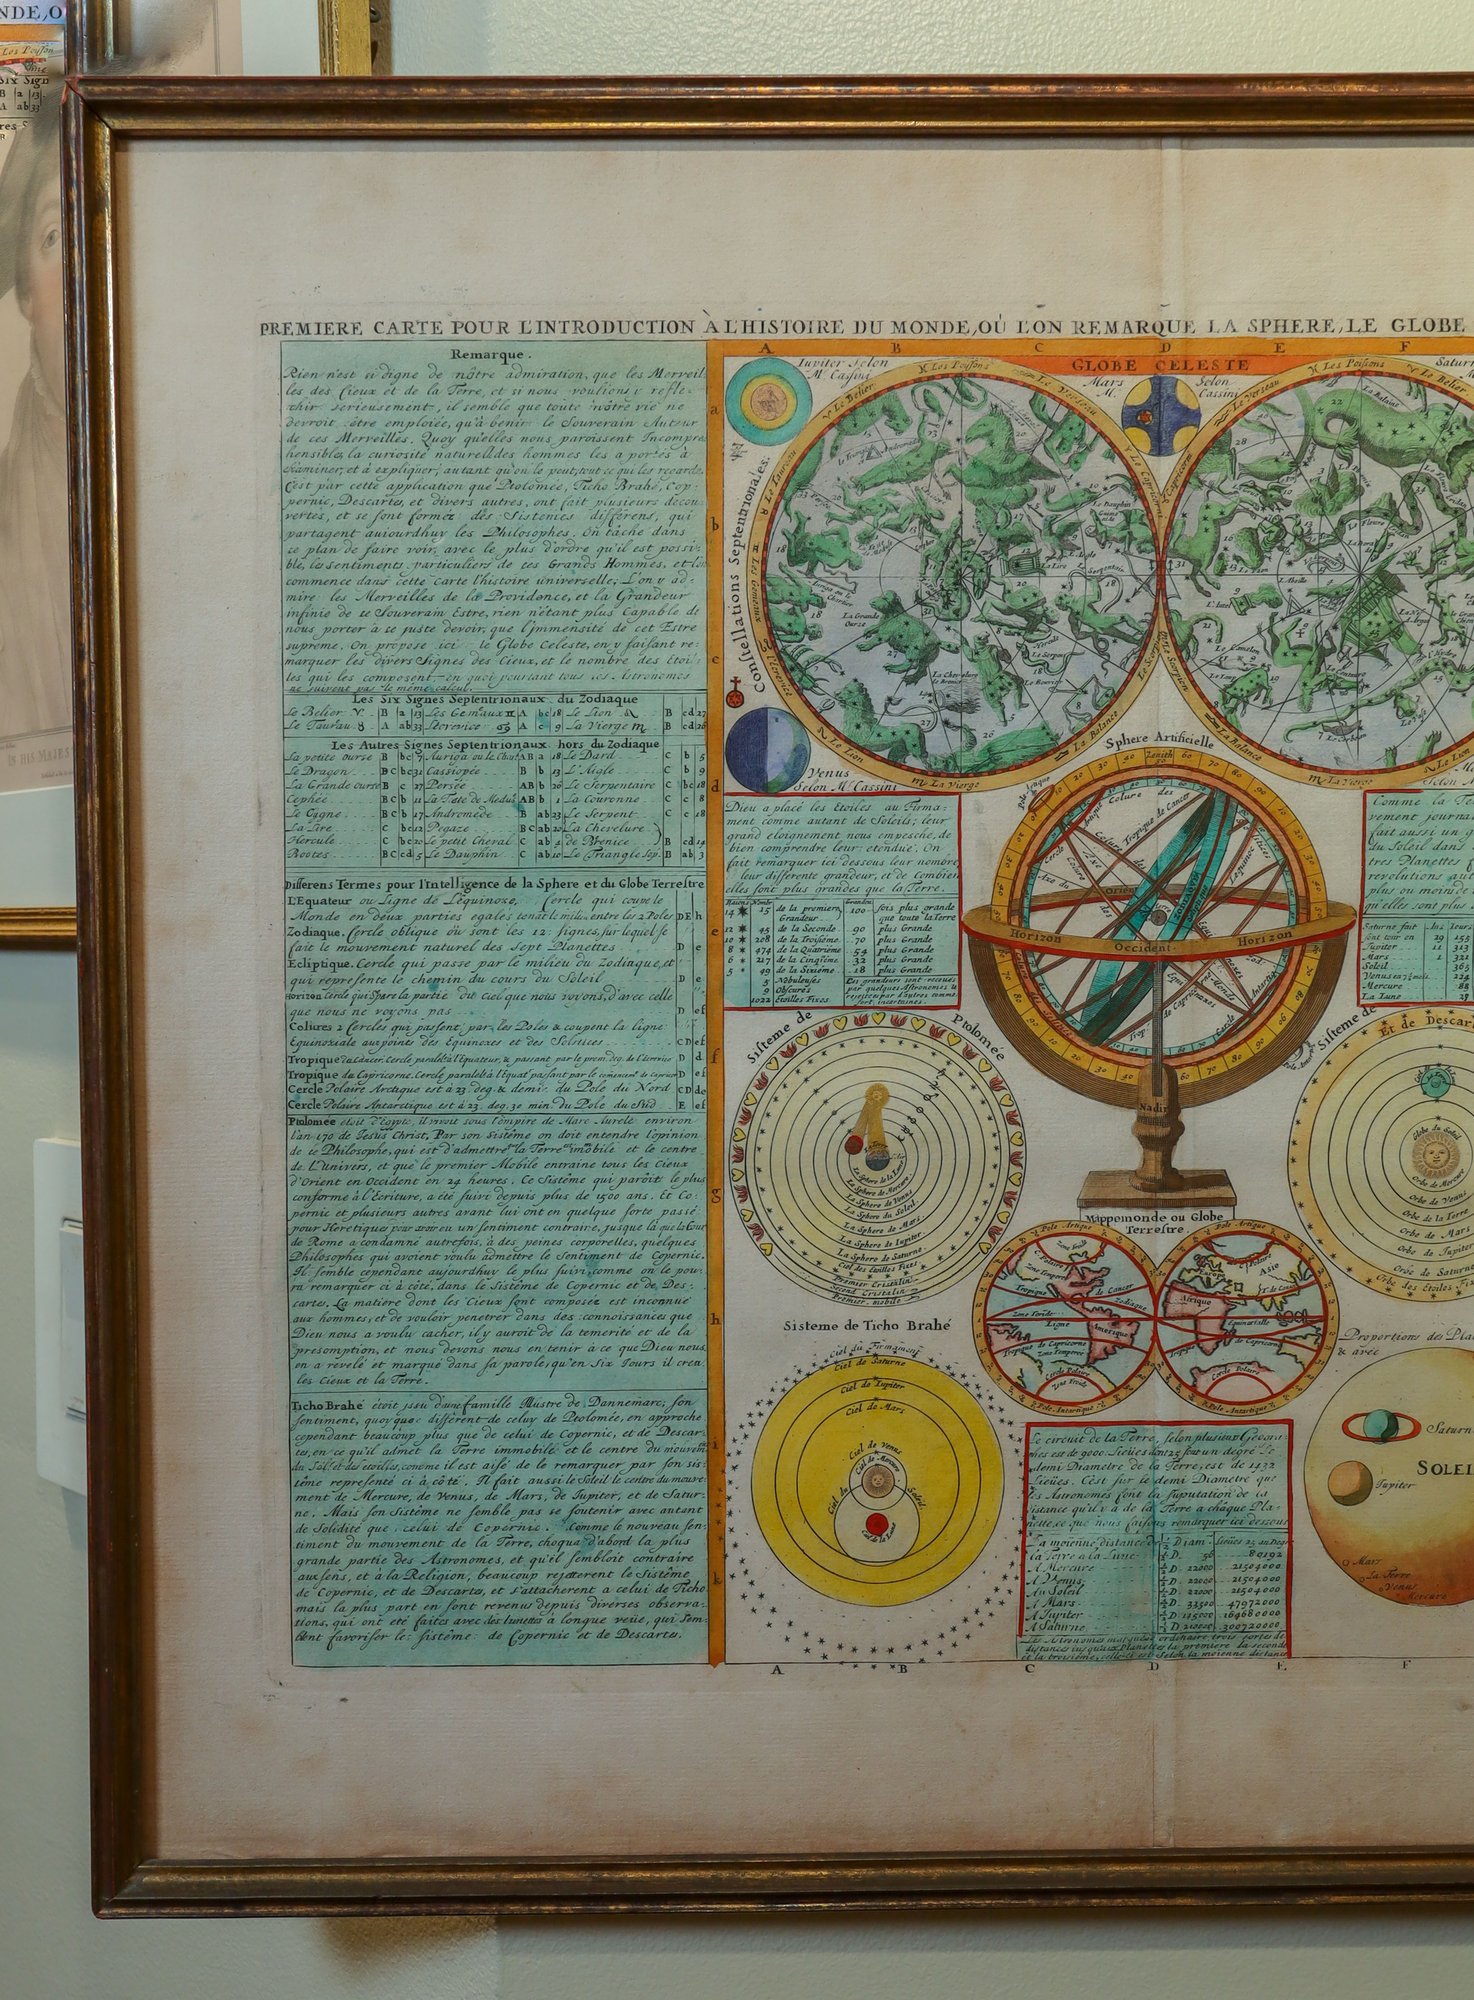 PREMIERE CARTE POUR L'INTRODUCTION À L'HISTOIRE DU MONDE, OÙ L'ON REMARQUE LA SPHERE, LE GLOBE
Remarque.
Rien n'est si digne de nôtre admiration, que les Merveil
les des Cieux et de la Terre, et si nous voulions y refle
chir serieusement, il semble que toute nôtre vie ne
devroit être emploiée, qu'à benir le Souverain Auteur
de ces Merveilles. Quoy qu'elles nous paroissent Incompre
hensible, la curiosité naturelle des hommes les a portés à
éxaminer, et à expliquer, autant qu'on le peut, tout ce qui les regarde.
C'est par cette application que Ptolomée, Ticho Brahé, Cop-
pernic, Descartes, et divers autres, ont fait plusieurs decou-
vertes, et se sont formez des Sistemes differens, qui
partagent aujourdhuy les Philosophes. On tâche dans
ce plan de faire voir, avec le plus d'ordre qu'il est possi-
ble, les sentiments particuliers de ces Grands Hommes, et l'on
commence dans cette Carte l'histoire universelle; L'on y ad-
mire les Merveilles de la Providence, et la Grandeur
infinie de ce Souverain Estre, rien n'étant plus Capable de
nous porter à ce juste devoir, que l'immensité de cet Estre
supreme. On propose ici le Globe Celeste, en y faisant re-
marquer les divers Signes des Cieux, et le nombre des Etoi-
les qui les composent en quoy pourtant tous les Astronomes
ne suivent pas le même calcul.
Les Six Signes Septentrionaux du Zodiaque
Le Belier ♈ B a 13 Les Gemaux ♊ A bc 18 Le Lion ♌ B cd 27
Le Taurau ♉ A ab 33 L'ecrevice ♋ A c 9 La Vierge ♍ B cd 26
Les Autres Signes Septentrionaux hors du Zodiaque
La petite ourse B bc 7 Auriga ou le Char AB a 18 Le Dard C b 5
Le Dragon BC bc 31 Cassiopée B b 13 L'Aigle C b 9
La Grande ourse B c 27 Persée AB b 20 Le Serpentaire C bc 18
Cephée BC b 11 La Tête de Meduse AB b 1 La Couronne C c 8
Le Cigne BC b 17 Andromède B ab 23 Le Serpent C c 18
La Lire C bc 12 Pegaze BC ab 20 La Chevelure
Hercule C bc 20 Le petit Cheval C ab 4 de Bronice B cd 14
Bootes BC cd 5 Le Dauphin C ab 10 Le Triangle Sep. B ab 3
Differens Termes pour l'Intelligence de la Sphere et du Globe Terrestre
L'Equateur ou Ligne de L'equinoxe, Cercle qui coupe le
Monde en deux parties egales tenat le milieu entre les 2 Poles DE h
Zodiaque, Cercle oblique où sont les 12 signes, sur lequel se
fait le mouvement naturel des Sept Planettes D e
Ecliptique. Cercle qui passe par le milieu du Zodiaque, et
qui represente le chemin du cours du Soleil D e
Horizon Cercle qui Separe la partie du Ciel que nous voyons, d'avec celle
que nous ne voyons pas D ef
Colures 2 Cercles qui passent, par les Poles & coupent la ligne
Equinoziale aux points des Equinoxes et des Solstices CD ef
Tropique du Cancer, Cercle paralel à l'Equateur, & passant par le prem. deg. de l'ecrevice D d
Tropique du Capricorne. Cercle paralel à l'Equat. passant par le comencement du capricor D ef
Cercle Polaire Arctique est à 23 deg. & demi du Pole du Nord CD de
Cercle Polaire Antarctique est à 23. deg. 30 min. du Pole du Sud E ef
Ptolomée etoit d'Egypte, il vivoit sous l'empire de Marc Aurele environ
l'an 170 de Jesus Christ, Par son Sistême on doit entendre l'opinion
de ce Philosophe, qui est d'admettre la Terre imobile et le centre
de L'univers, et que le premier Mobile entraine tous les Cieux
d'Orient en Occident en 24 heures. Ce Sistême qui paroît le plus
conforme à l'Ecriture, a été suivi depuis plus de 1500 ans. Et Co-
pernic et plusieurs autres avant lui ont en quelque sorte passé
pour Heretiques pour avoir eu un sentiment contraire, jusque là que la Cour
de Rome a condanné autrefois, à des peines corporelles, quelques
Philosophes qui avoient voulu admettre le Sentiment de Copernic.
Il semble cependant aujourdhuy le plus suivi, comme on le pou-
ra remarquer ci à côté, dans le Sistême de Copernic et de Des-
cartes. La matiere dont les Cieux sont composéz est inconnuë
aux hommes, et de vouloir penetrer dans des connoissances que
Dieu nous a voulu cacher, il y auroit de la temerité et de la
presomption, et nous devons nous en tenir à ce que Dieu nous
en a revelé et marqué dans sa parole, qu'en Six Jours il crea
les Cieux et la Terre.
Ticho Brahé étoit issu d'une famille Illustre de Dannemarc; son
sentiment, quoyque different de celuy de Ptolomée, en approche
cependant beaucoup plus que de celui de Copernic, et de Descar-
tes, en ce qu'il admet la Terre immobile et le centre du mouvem.
du Soleil et des etoilles, comme il est aisé de le remarquer par son sis-
tême representé ci à côté. Il fait aussi le Soleil le centre du mouve-
ment de Mercure, de Venus, de Mars, de Jupiter, et de Satur-
ne. Mais son Sistême ne semble pas se soutenir avec autant
de Solidité que celui de Copernic. Comme le nouveau sen-
timent du mouvement de la Terre, choqua d'abord la plus
grande partie des Astronomes, et qu'il sembloit contraire
aux sens, et à la Religion, beaucoup rejetterent le Sistême
de Copernic, et de Descartes, et s'attacherent a celui de Ticho
mais la plus part en sont revenus depuis diverses observa-
tions, qui ont eté faites avec des lunettes à longue veüe, qui sem-
blent favoriser le sistême de Copernic et de Descartes.
A B C D E F
GLOBE CELESTE
Jupiter Selon
Mr. Cassini
Mars Selon
M. Cassini
Satur
Constellations Septentrionales.
♈ Le Belier
♓ Les Poissons
Le Verseau
Le Capricorne
Le Scorpion
La Balance
♍ La Vierge
♌ Le Lion
L'ecrevice
♊ Les Gemeaux
♉ Le Taureau
La Grande
Ourse
Le Dauphin
L'Aigle
La Lire
Le Serpentaire
La Chevelure
Le Bouvier
Le Verseau
Les Poissons
♈ Le Belier
La Balaine
Le Fleuve
L'Abeille
L'Autel
Le Loup
Le Corbeau
Le Lion
♍ La Vierge
La Balance
Venus
Selon Mr. Cassini
Sphere Artificielle
Zenith
Colure des
Tropique de Cancer
Orient
Zodiaque
Horizon
Occident
Horizon
Nadir
Dieu a placé les Etoiles au Firma-
ment comme autant de Soleils; leur
grand eloignement nous empesche, de
bien comprendre leur etenduë. On
fait remarquer ici dessous leur nombre,
leur differente grandeur, et de combien
elles sont plus grandes que la Terre.
14 15 de la premiere Grandeur 100 fois plus grande que toute la Terre
12 45 de la Seconde 90 plus Grande
10 208 de la Troisiême 70 plus Grande
8 474 de la Quatriême 54 plus Grande
6 217 de la Cinqiême 32 plus Grande
5 49 de la Sixieme 18 plus Grande
5 Nebuleuses
9 Obscures
1022 Etoilles Fixes
Ces grandeurs sont receues
par quelques Astronomes &
rejettées par d'autres comme
fort incertaines.
Comme la Te
vement journal
fait aussi un
du Soleil dans
tres Planettes
revolutions aut
plus ou moins
qu'elles sont plus
Saturne fait Ans Jours
son tour en 29 155
Jupiter 11 313
Mars 1 321
Soleil 365
Venus en 7 ½ mois 224
Mercure 88
La Lune 29
Sisteme de Ptolomée
La Terre
La Sphere de la Lune
La Sphere de Mercure
La Sphere de Venus
La Sphere du Soleil
La Sphere de Mars
La Sphere de Jupiter
La Sphere de Saturne
Ciel des Etoilles Fixes
Premier Cristalin
Second Cristalin
Premier mobile
Sisteme de
Et de Descar
Globe du Soleil
Orbe de Mercure
Orbe de Venus
Orbe de la Terre
Orbe de Mars
Orbe de Jupiter
Orbe de Saturne
Orbe des Etoiles Fix
Mappemonde ou Globe
Terrestre.
Pole Artique
Pole Artique
Zone froide
Tropique de Cancer
Zone Toride
Ligne
Amerique
Tropique de Capricorne
Zone Temperée
Cercle Polaire
Zone Froide
Pole Antartique
Europe
Asie
Afrique
Equinoctialle
Tropiq. de Capricorne
Cercle Polaire
Pole Antartique
Sisteme de Ticho Brahé
Ciel du Firmament
Ciel de Saturne
Ciel de Jupiter
Ciel de Mars
Ciel de Venus
Ciel de Mercure
Ciel du Soleil
Ciel de la Lune
Le circuit de la Terre, selon plusieurs Geogra-
phes est de 9000 Lieües dont 25 font un degré. Le
demi Diametre de la Terre, est de 1432
Lieües. C'est sur ce demi Diametre que
les Astronomes font la suputation de la
distance qu'il y a de la Terre a châque Pla-
nette, ce que nous faisons remarquer ici dessous
La moienne distance de ½ Diam. Lieües 25 au Degr
la Terre a la Lune ½ D. 56 80192
A Mercure ½ D. 22000 21504000
A Venus ½ D. 22000 21504000
Au Soleil ½ D. 22000 21504000
A Mars ½ D. 33500 47972000
A Jupiter ½ D. 115000 164680000
A Saturne ½ D. 210000 300720000
Les Astronomes marquent ordinaire trois sortes de
distances jusqu'aux Planettes la premiere la seconde
et la troisiéme, celle ci est selon la moienne distance
Proportions des Pla
& avec
Saturn
SOLEIL
Jupiter
Mars
La Terre
Venus
Mercure
A B C D E F
IN HIS MAJES